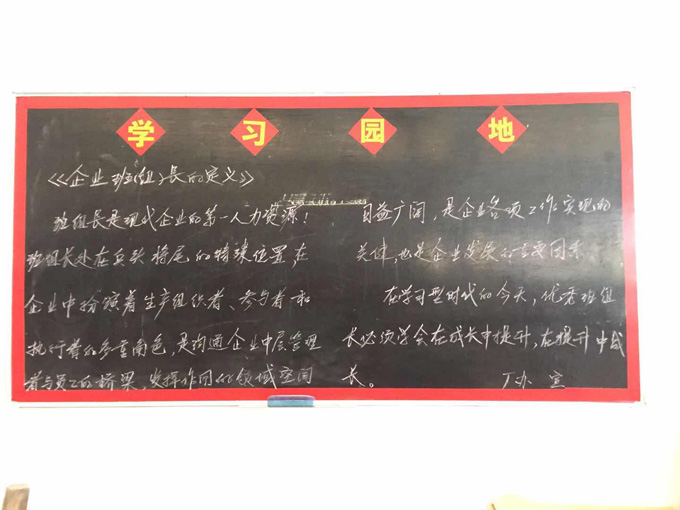 学习园地
《企业班(组)长的定义》
班组长是现代企业的第一人力资源！
班组长处在兵头将尾的特殊位置，在
企业中扮演着生产组织者、参与者和
执行者的多重角色，是沟通企业中层管理
者与员工的桥梁，发挥作用的领域空间
日益广阔，是企业各项工作实现的
关健，也是企业发展的主要因素。
在学习型时代的今天，优秀班组
长必须学会在成长中提升，在提升中成
长。
丁办 宣